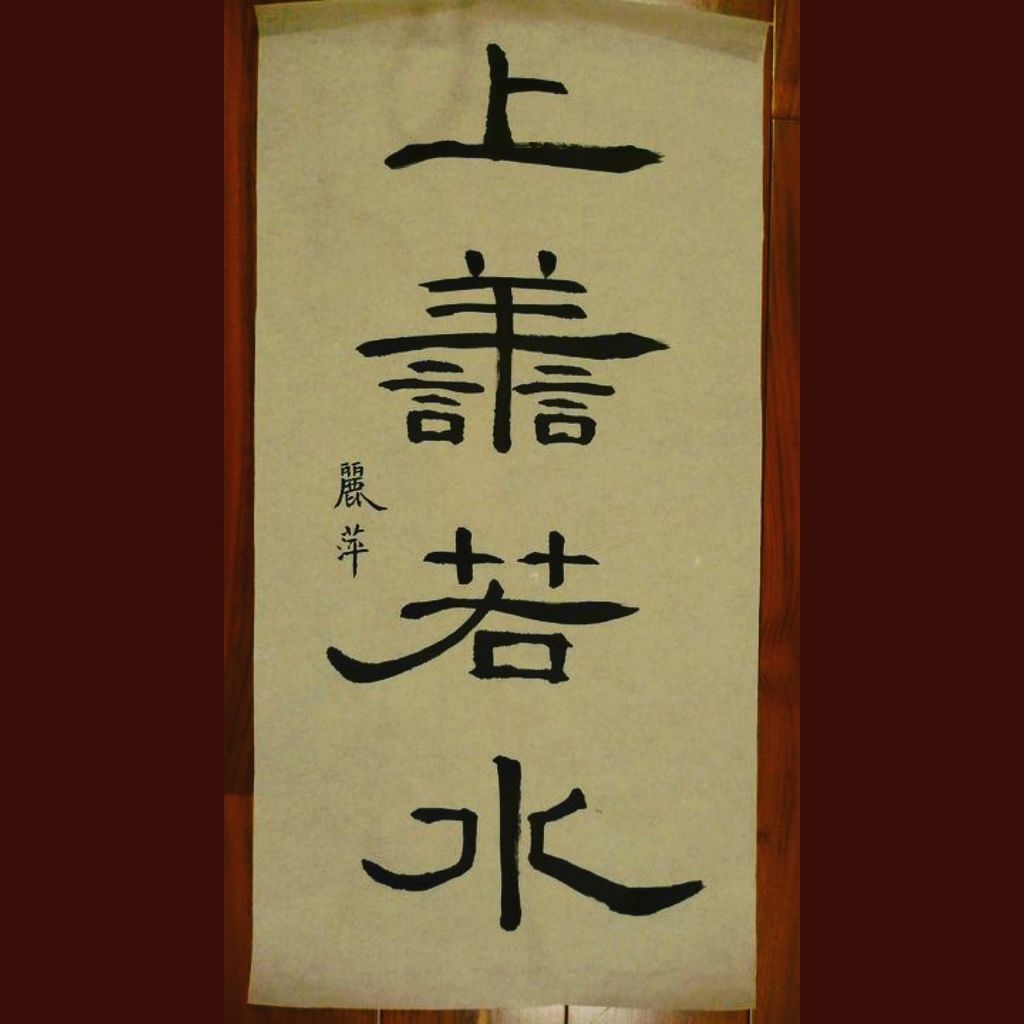 上譱若水
麗萍